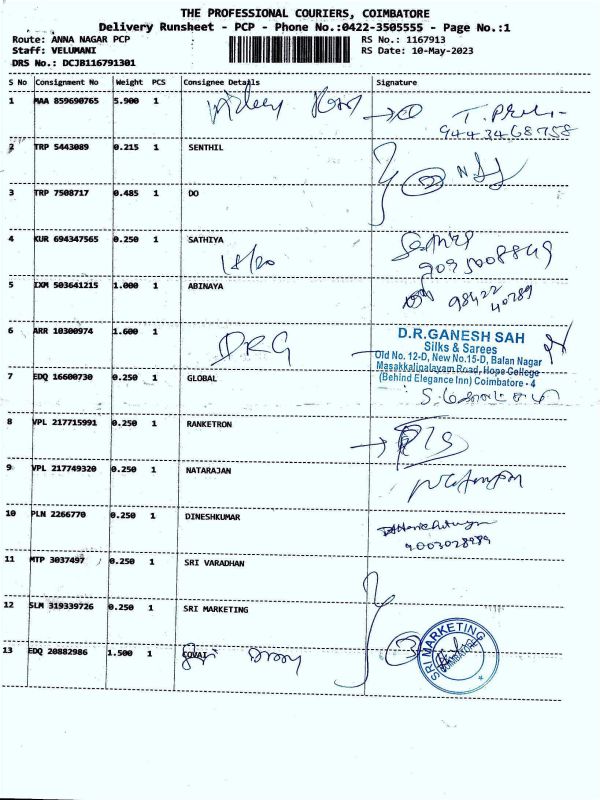 THE PROFESSIONAL COURIERS, COIMBATORE
Delivery Runsheet - PCP - Phone No.:0422-3505555 - Page No.:1
Route: ANNA NAGAR PCP RS No.: 1167913
Staff: VELUMANI RS Date: 10-May-2023
DRS No.: DCJB116791301
S No Consignment No Weight PCS Consignee Details Signature
1 MAA 859690765 5.900 1
9443468758
2 TRP 5443089 0.215 1 SENTHIL
3 TRP 7508717 0.485 1 DO
4 KUR 694347565 0.250 1 SATHIYA
9095008849
5 IXM 503641215 1.000 1 ABINAYA
98422
40789
6 ARR 10300974 1.600 1 DRG
D.R.GANESH SAH
Silks & Sarees
Old No. 12-D, New No.15-D, Balan Nagar
Masakkalipalayam Road, Hope College
(Behind Elegance Inn) Coimbatore - 4
7 EDQ 16600730 0.250 1 GLOBAL
8 VPL 217715991 0.250 1 RANKETRON
9 VPL 217749320 0.250 1 NATARAJAN
10 PLN 2266770 0.250 1 DINESHKUMAR
9003028989
11 MTP 3037497 0.250 1 SRI VARADHAN
12 SLM 319339726 0.250 1 SRI MARKETING
13 EDQ 20882986 1.500 1 COVAI
SRI MARKETING
COIMBATORE